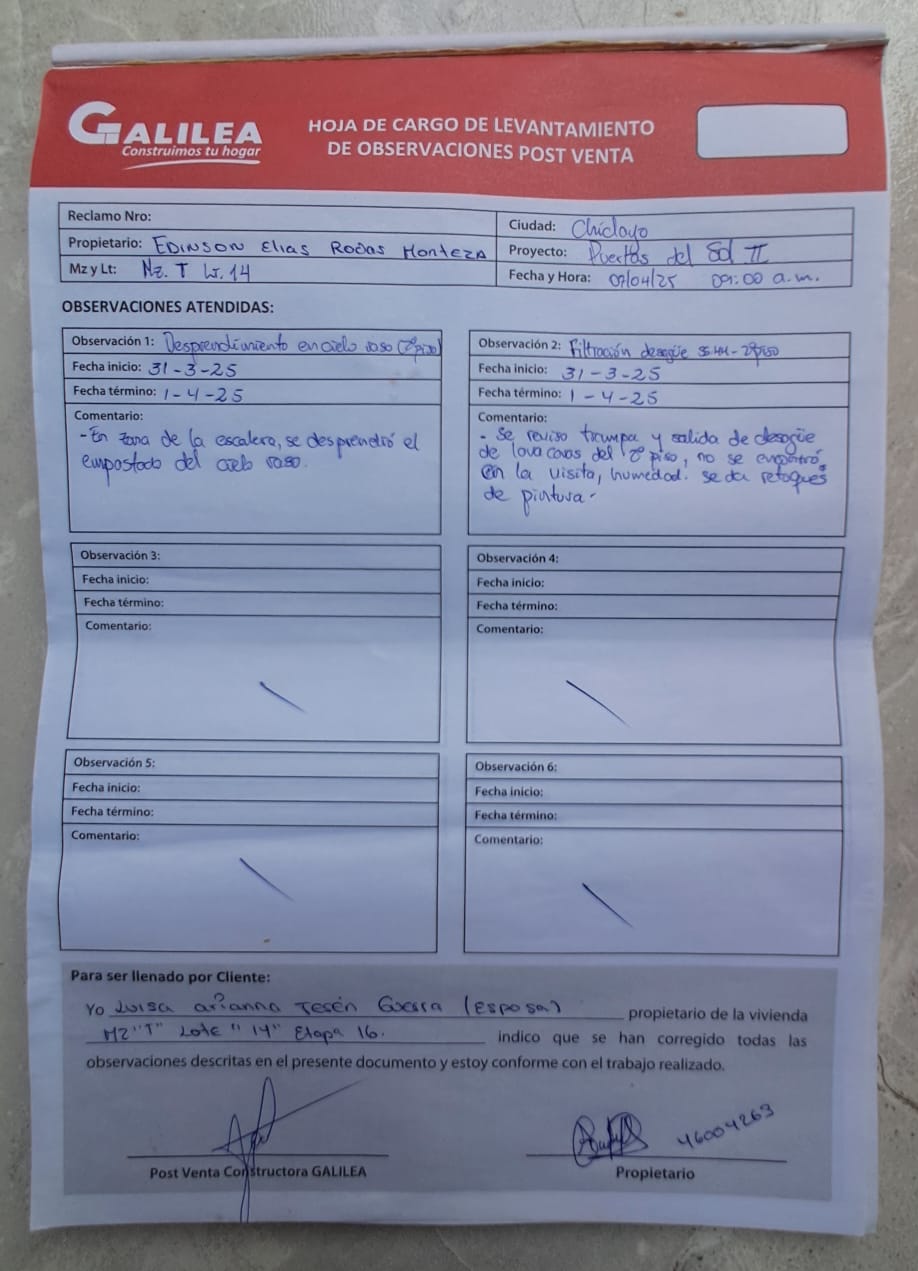 GALILEA
Construimos tu hogar
HOJA DE CARGO DE LEVANTAMIENTO
DE OBSERVACIONES POST VENTA
Reclamo Nro:
Propietario: EDINSON Elias RODAS MONTEZA
Mz y Lt: Mz. T Lt. 14
Ciudad: Chiclayo
Proyecto: Puertas del Sol II
Fecha y Hora: 07/04/25 09:00 a.m.
OBSERVACIONES ATENDIDAS:
Observación 1: Desprendimiento en cielo raso (2º piso)
Fecha inicio: 31-3-25
Fecha término: 1-4-25
Comentario:
- En zona de la escalera, se desprendió el
empostado del cielo raso.
Observación 2: Filtración desagüe SS.HH - 2º piso
Fecha inicio: 31-3-25
Fecha término: 1-4-25
Comentario:
- Se reviso trampa y salida de desagüe
de lavacaras del 2º piso, no se encontró,
en la visita, humedad. se da retoques
de pintura-
Observación 3:
Fecha inicio:
Fecha término:
Comentario:
Observación 4:
Fecha inicio:
Fecha término:
Comentario:
Observación 5:
Fecha inicio:
Fecha término:
Comentario:
Observación 6:
Fecha inicio:
Fecha término:
Comentario:
Para ser llenado por Cliente:
Yo Luisa arianna Tesén Guerra (Esposa) propietario de la vivienda
MZ "T" Lote "14" Etapa 16. indico que se han corregido todas las
observaciones descritas en el presente documento y estoy conforme con el trabajo realizado.
46004263
Post Venta Constructora GALILEA
Propietario